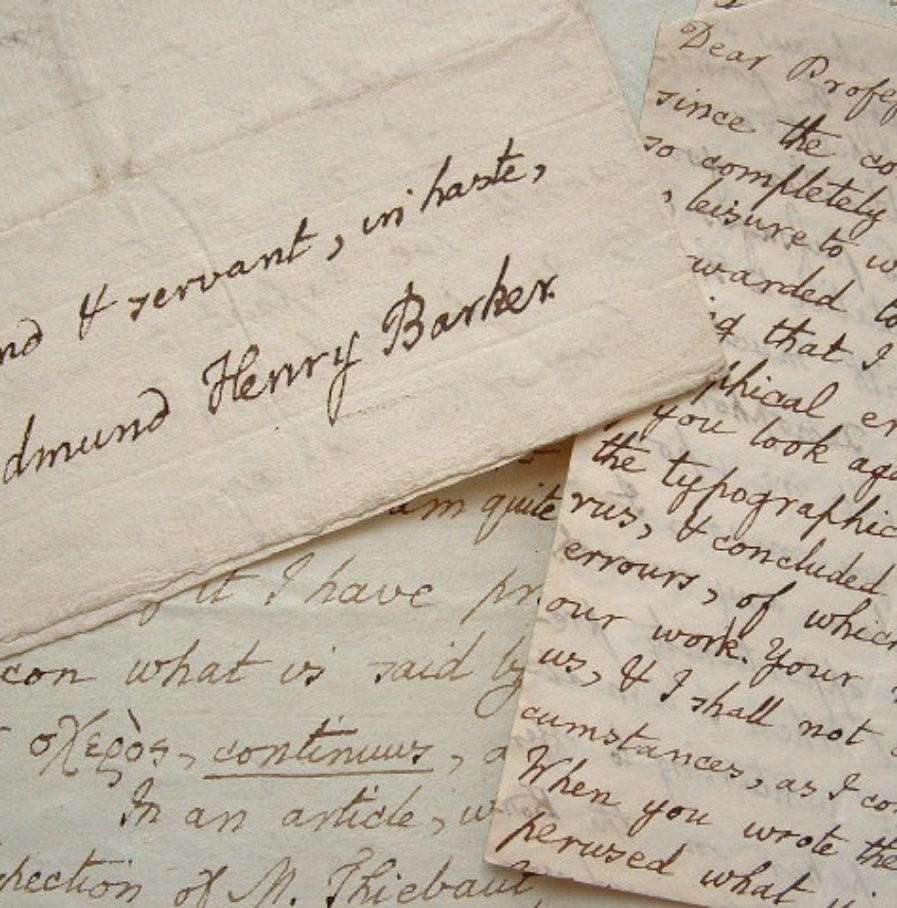 nd & servant, in haste,
dmund Henry Barker.
Dear Profes
since the co
so completely
, leisure to w
warded to
that I
phical er
you look aga
the typographic
rus, & concluded
errours, of which
our work. Your
us, & I shall not
cumstances, as I co
When you wrote the
perused what i
am quite
it I have pr
con what is said by
σχερὸς, continuus, a
In an article, w
rection of M. Thiebaut,